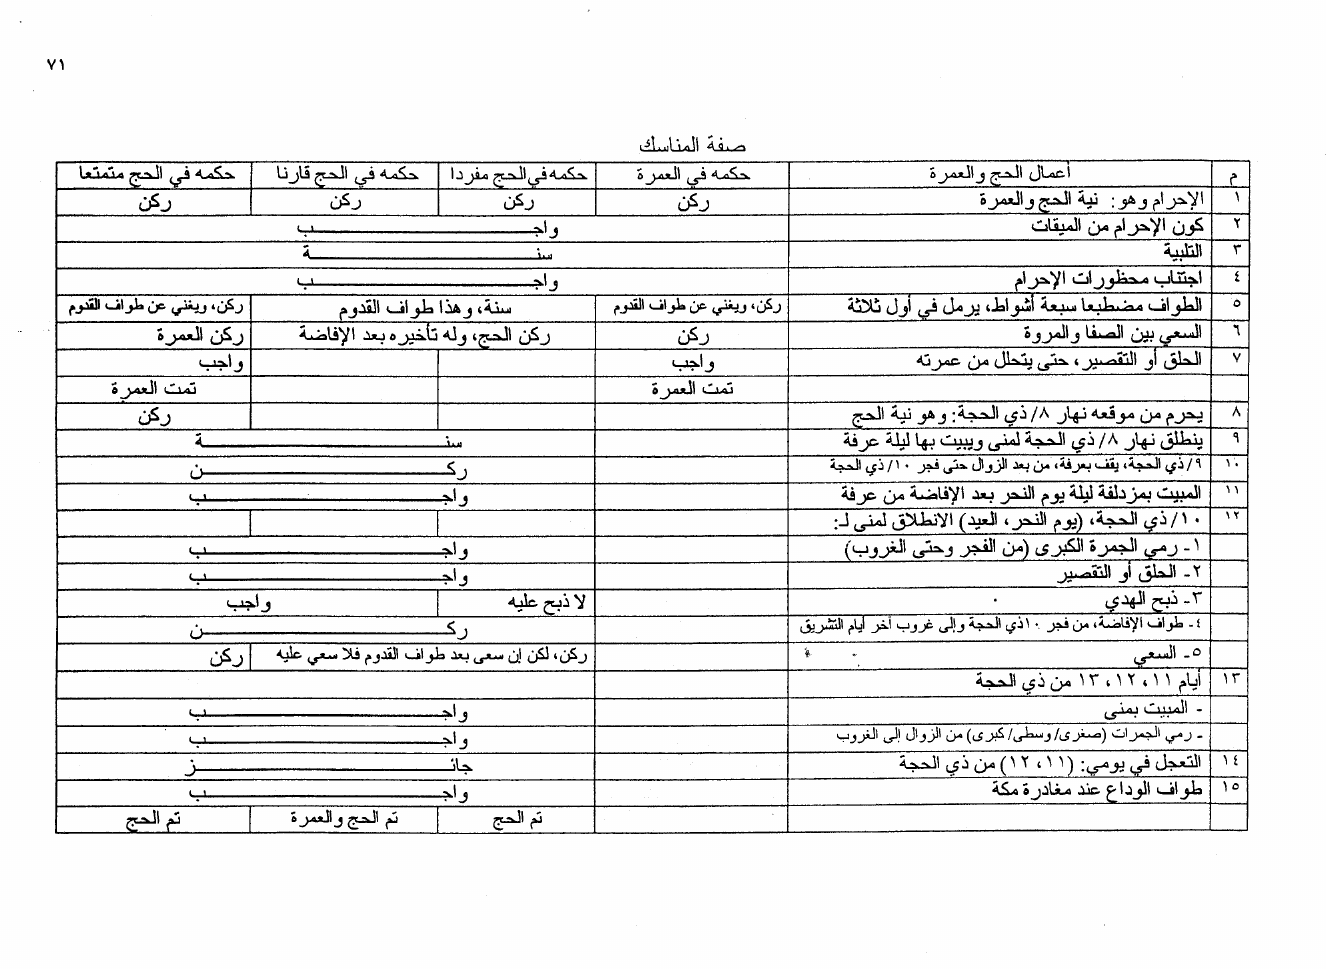 ٧١
صفة المناسك
م أعمال الحج والعمرة حكمه في العمرة حكمه في الحج مفردا حكمه في الحج قارنا حكمه في الحج متمتعا
١ الإحرام وهو: نية الحج والعمرة ركن ركن ركن ركن
٢ كون الإحرام من الميقات واجـــــب
٣ التلبية سنـــــة
٤ اجتناب محظورات الإحرام واجـــــب
٥ الطواف مضطبعا سبعة أشواط، يرمل في أول ثلاثة ركن، ويغني عن طواف القدوم سنة، وهذا طواف القدوم ركن، ويغني عن طواف القدوم
٦ السعي بين الصفا والمروة ركن ركن الحج، وله تأخيره بعد الإفاضة ركن العمرة
٧ الحلق أو التقصير، حتى يتحلل من عمرته واجب واجب
تمت العمرة تمت العمرة
٨ يحرم من موقعه نهار ٨/ ذي الحجة: وهو نية الحج ركن
٩ ينطلق نهار ٨/ ذي الحجة لمنى ويبيت بها ليلة عرفة سنـــــة
١٠ ٩/ ذي الحجة، يقف بعرفة، من بعد الزوال حتى فجر ١٠/ ذي الحجة ركـــــن
١١ المبيت بمزدلفة ليلة يوم النحر بعد الإفاضة من عرفة واجـــــب
١٢ ١٠/ ذي الحجة، (يوم النحر، العيد) الانطلاق لمنى لـ:
١- رمي الجمرة الكبرى (من الفجر وحتى الغروب) واجـــــب
٢- الحلق أو التقصير واجـــــب
٣- ذبح الهدي لا ذبح عليه واجب
٤- طواف الإفاضة، من فجر ١٠ ذي الحجة وإلى غروب آخر أيام التشريق ركـــــن
٥- السعي ركن، لكن إن سعى بعد طواف القدوم فلا سعي عليه ركن
١٣ أيام ١١، ١٢، ١٣ من ذي الحجة
- المبيت بمنى واجـــــب
- رمي الجمرات (صغرى/ وسطى/ كبرى) من الزوال إلى الغروب واجـــــب
١٤ التعجل في يومي: (١١، ١٢) من ذي الحجة جائـــــز
١٥ طواف الوداع عند مغادرة مكة واجـــــب
تم الحج تم الحج والعمرة تم الحج